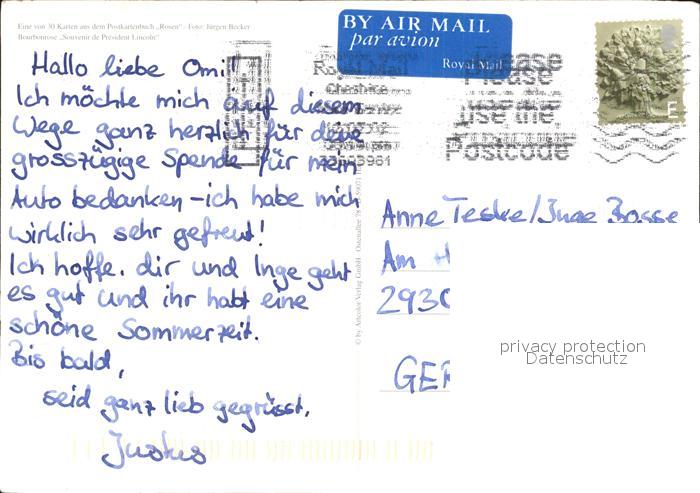 Eine von 30 Karten aus dem Postkartenbuch „Rosen“ · Foto: Jürgen Becker
Bourbonrose „Souvenir de Président Lincoln“
BY AIR MAIL
par avion
Royal Mail
Royal Mail
Cheshire
Please
use the
Postcode
E
Hallo liebe Omi!
Ich möchte mich auf diesem
Wege ganz herzlich für deine
grosszügige Spende für mein
Auto bedanken – ich habe mich
wirklich sehr gefreut!
Ich hoffe, dir und Inge geht
es gut und ihr habt eine
schöne Sommerzeit.
Bis bald,
seid ganz lieb gegrüsst,
Justus
© by Artcolor Verlag GmbH
Anne Teske/Inge Bosse
Am H
2930
GER
privacy protection
Datenschutz